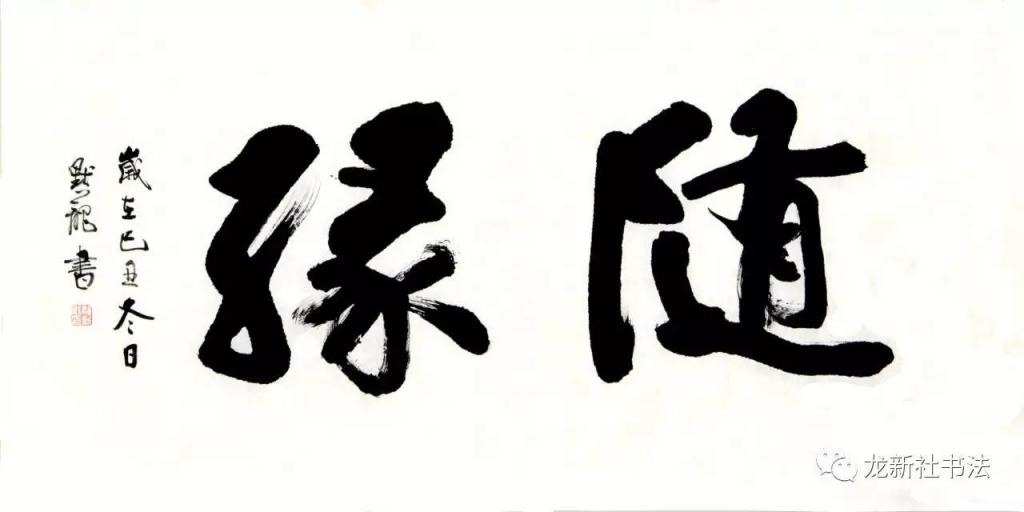 随缘
歲在己丑冬日
默龍書
龙新社书法